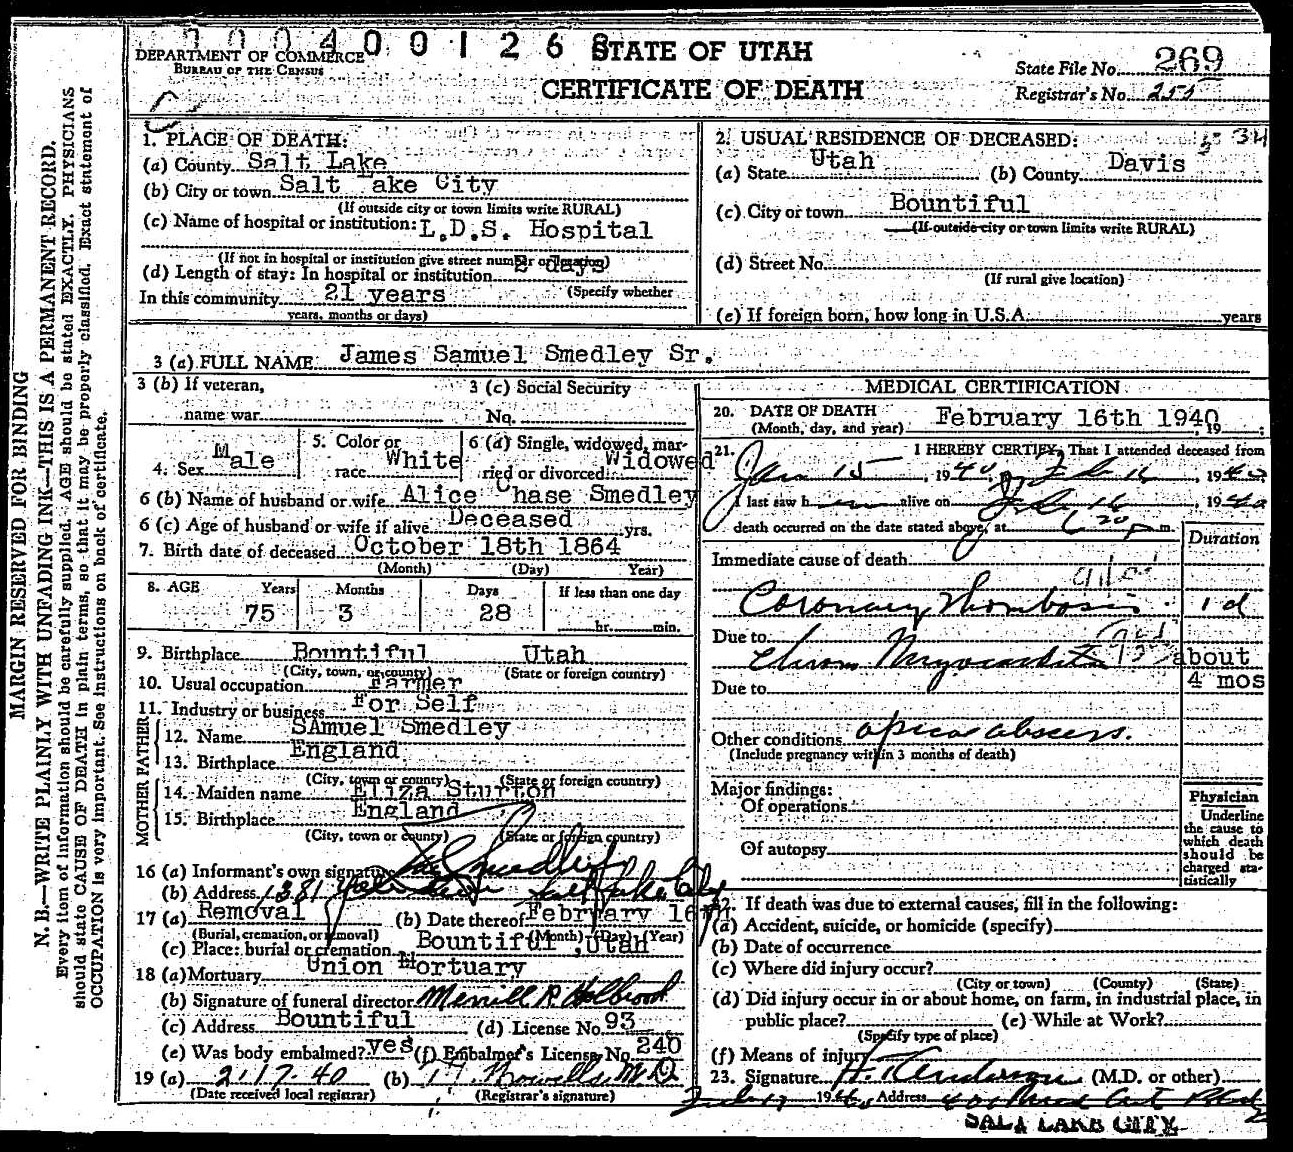 7 0 0 4 0 0 1 2 6
DEPARTMENT OF COMMERCE
BUREAU OF THE CENSUS
STATE OF UTAH
CERTIFICATE OF DEATH
State File No. 269
Registrar's No. 255
MARGIN RESERVED FOR BINDING
N. B.—WRITE PLAINLY WITH UNFADING INK—THIS IS A PERMANENT RECORD.
Every item of information should be carefully supplied. AGE should be stated EXACTLY. PHYSICIANS
should state CAUSE OF DEATH in plain terms, so that it may be properly classified. Exact statement of
OCCUPATION is very important. See instructions on back of certificate.
1. PLACE OF DEATH:
(a) County Salt Lake
(b) City or town Salt Lake City
(If outside city or town limits write RURAL)
(c) Name of hospital or institution: L.D.S. Hospital
(If not in hospital or institution give street number or location)
(d) Length of stay: In hospital or institution 2 days
(Specify whether
In this community 21 years
years, months or days)
2. USUAL RESIDENCE OF DECEASED: 34
(a) State Utah (b) County Davis
(c) City or town Bountiful
(If outside city or town limits write RURAL)
(d) Street No.
(If rural give location)
(e) If foreign born, how long in U.S.A. years
3 (a) FULL NAME James Samuel Smedley Sr.
3 (b) If veteran, name war
3 (c) Social Security No.
4. Sex Male
5. Color or race White
6 (a) Single, widowed, married or divorced Widowed
6 (b) Name of husband or wife Alice Chase Smedley
6 (c) Age of husband or wife if alive Deceased yrs.
7. Birth date of deceased October 18th 1864
(Month) (Day) Year)
8. AGE Years Months Days If less than one day
75 3 28 hr. min.
9. Birthplace Bountiful Utah
(City, town, or county) (State or foreign country)
10. Usual occupation Farmer
11. Industry or business For Self
FATHER
12. Name SAmuel Smedley
13. Birthplace England
(City, town or county) (State or foreign country)
MOTHER
14. Maiden name Eliza Sturton
15. Birthplace England
(City, town or county) (State or foreign country)
16 (a) Informant's own signature Smedley
(b) Address 1381 Yale Salt Lake City
17 (a) Removal (b) Date thereof February 16th
(Burial, cremation, or removal) (Month) (Day) (Year)
(c) Place: burial or cremation Bountiful, Utah
18 (a) Mortuary Union Mortuary
(b) Signature of funeral director Merrill R Holbrook
(c) Address Bountiful (d) License No. 93
(e) Was body embalmed? yes (f) Embalmer's License No. 240
19 (a) 2-17-40 (b) M.D.
(Date received local registrar) (Registrar's signature)
MEDICAL CERTIFICATION
20. DATE OF DEATH February 16th 1940, 19 ;
(Month, day, and year)
21. I HEREBY CERTIFY, That I attended deceased from
Jan 15, 1940, to Feb 16, 1940
I last saw h im alive on Feb 16, 1940
death occurred on the date stated above, at 6 20 p m.
Duration
Immediate cause of death
Coronary Thrombosis 1 d
Due to
Chron Myocarditis about
Due to 4 mos
Other conditions apical abscess.
(Include pregnancy within 3 months of death)
Major findings:
Of operations
Of autopsy
Physician
Underline
the cause to
which death
should be
charged sta-
tistically
22. If death was due to external causes, fill in the following:
(a) Accident, suicide, or homicide (specify)
(b) Date of occurrence
(c) Where did injury occur?
(City or town) (County) (State)
(d) Did injury occur in or about home, on farm, in industrial place, in
public place? (e) While at Work?
(Specify type of place)
(f) Means of injury
23. Signature (M.D. or other)
Feb 17 1940 Address
SALT LAKE CITY